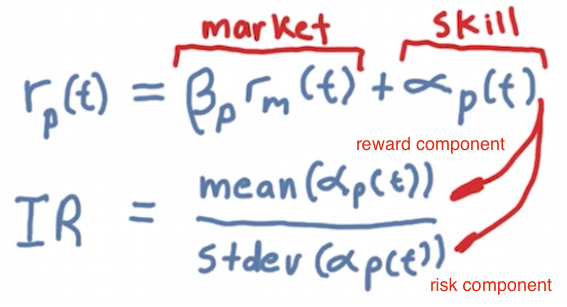 market skill
r_p(t) = β_p r_m(t) + α_p(t)
reward component
IR = mean(α_p(t)) / stdev(α_p(t))
risk component